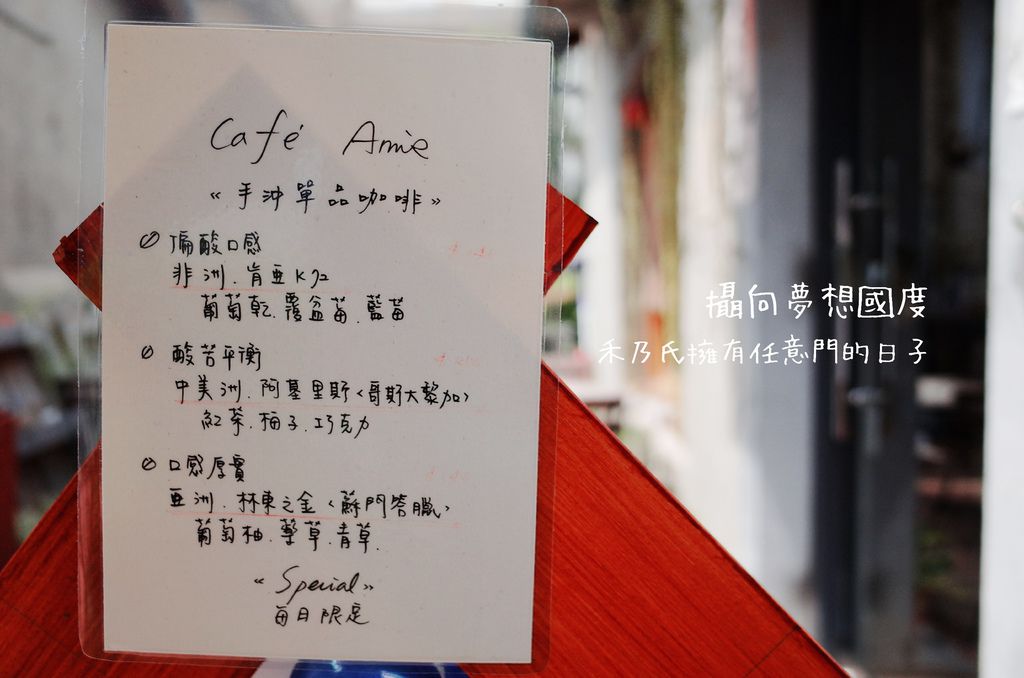 Café Amie
《手沖單品咖啡》
偏酸口感
非洲.肯亞K72
葡萄乾.覆盆莓.藍莓
酸苦平衡
中美洲.阿墓里斯<哥斯大黎加>
紅茶.柚子.巧克力
口感厚實
亞洲.林東之金<蘇門答臘>
葡萄柚.藥草.青草.
《Special》
每日限定
攝向夢想國度
禾乃氏擁有任意門的日子